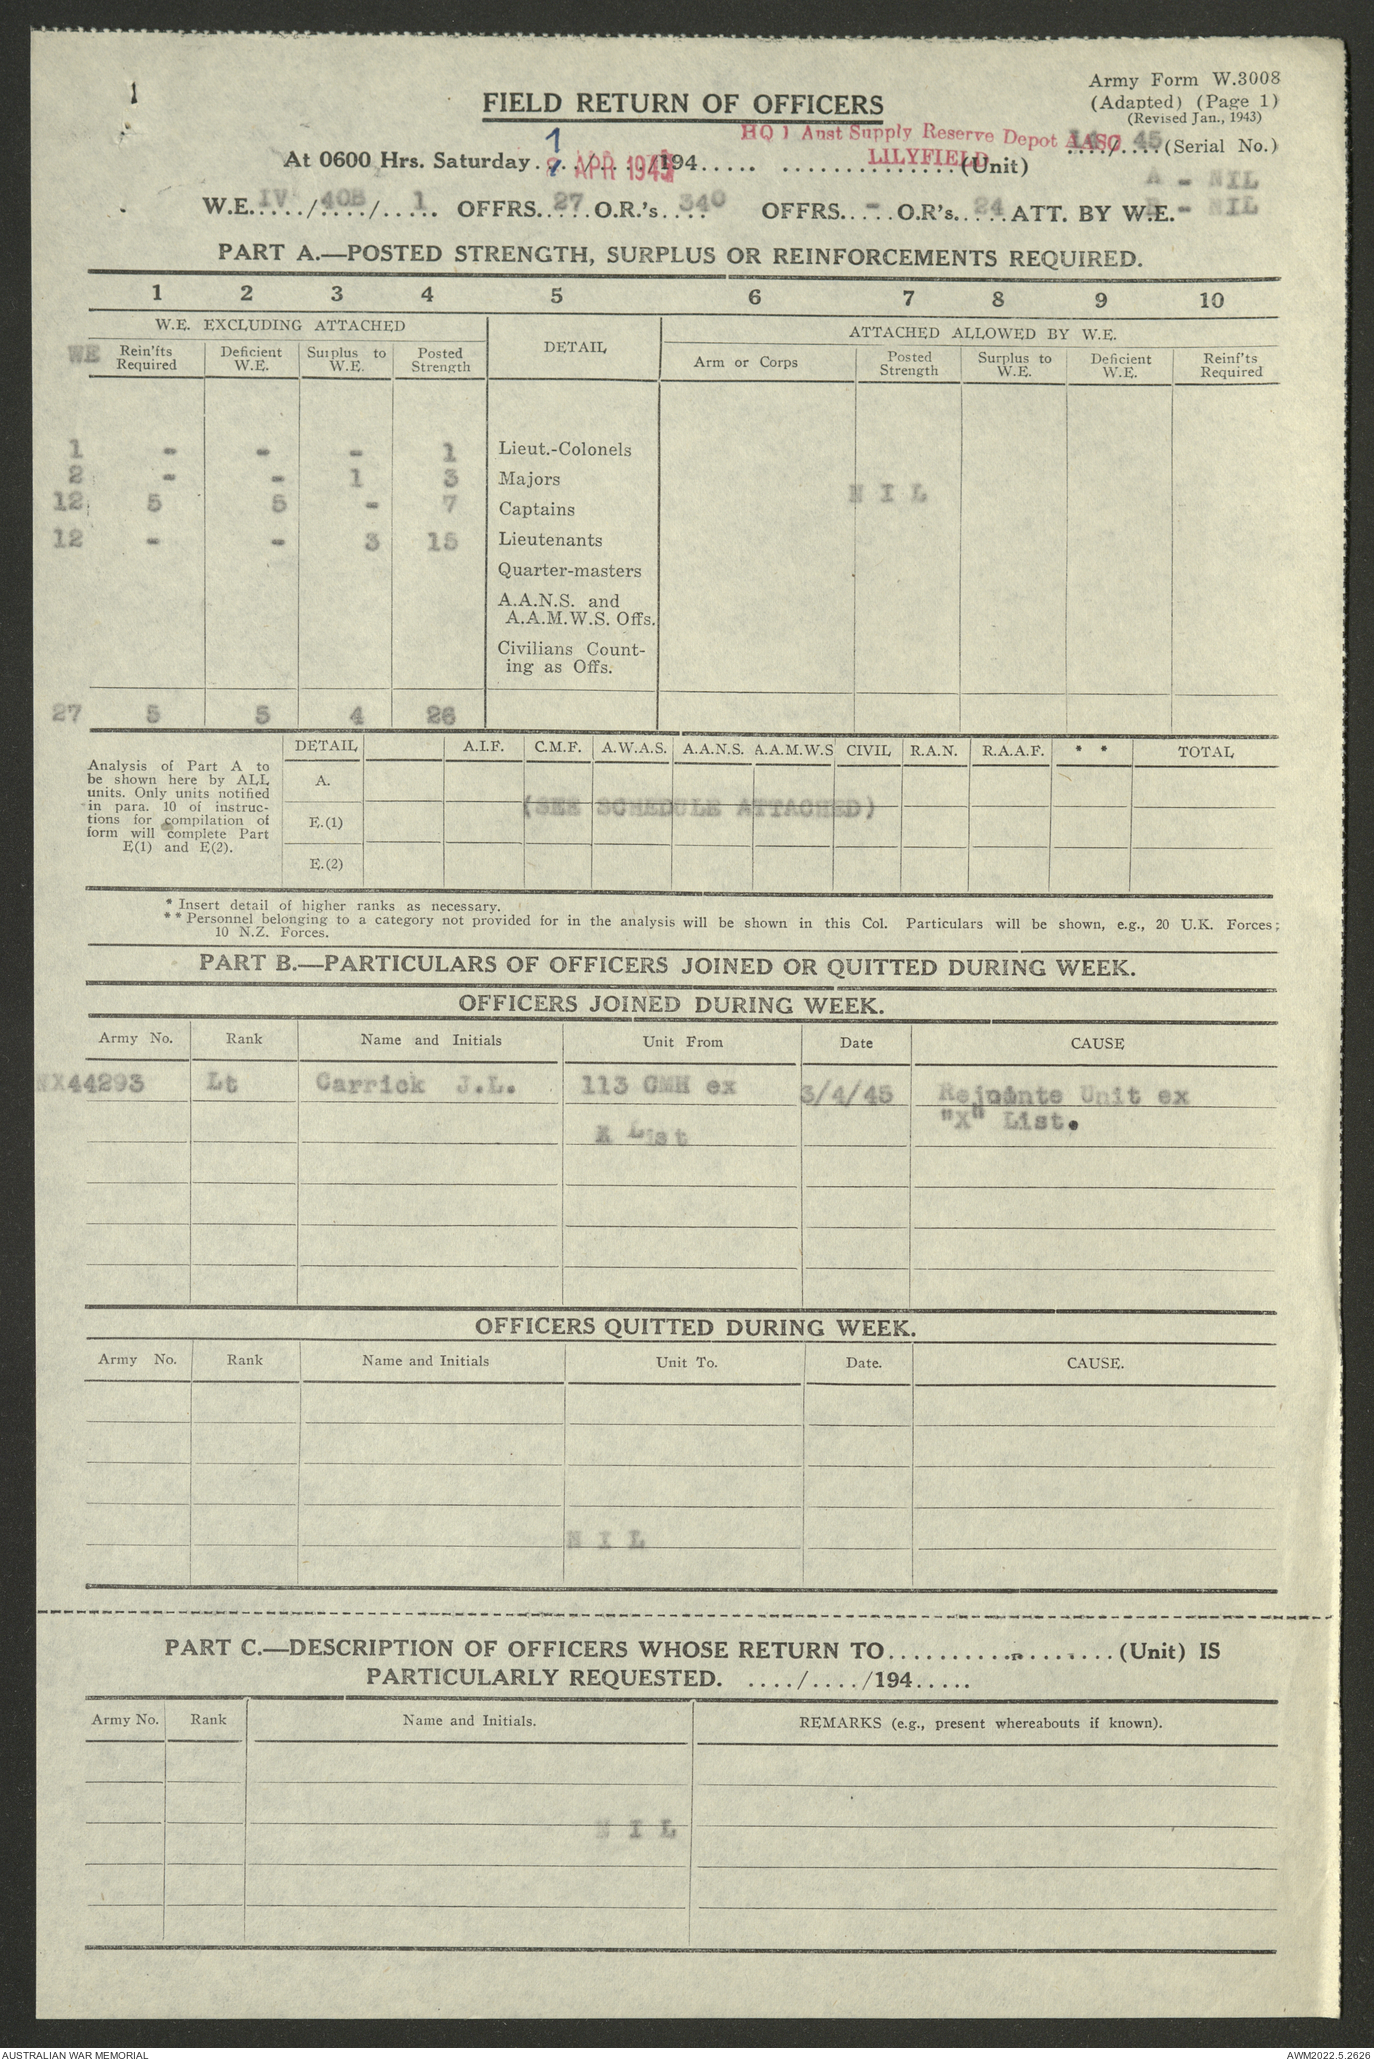 1
Army Form W.3008
(Adapted) (Page 1)
(Revised Jan., 1943)
FIELD RETURN OF OFFICERS
HQ 1 Aust Supply Reserve Depot AASC
LILYFIELD
1
At 0600 Hrs. Saturday..../..../194..... ...............(Unit) 14/45 (Serial No.)
APR 1945
A - NIL
W.E. IV / 40B / 1 OFFRS. 27 O.R.'s. 340 OFFRS. - O.R's. 24 ATT. BY W.E. - NIL
PART A.—POSTED STRENGTH, SURPLUS OR REINFORCEMENTS REQUIRED.
1 2 3 4 5 6 7 8 9 10
W.E. EXCLUDING ATTACHED DETAIL ATTACHED ALLOWED BY W.E.
WE Rein'fts Required Deficient W.E. Surplus to W.E. Posted Strength Arm or Corps Posted Strength Surplus to W.E. Deficient W.E. Reinf'ts Required
1 - - - 1 Lieut.-Colonels
2 - - 1 3 Majors
N I L
12 5 5 - 7 Captains
12 - - 3 15 Lieutenants
Quarter-masters
A.A.N.S. and
A.A.M.W.S. Offs.
Civilians Count-
ing as Offs.
27 5 5 4 26
DETAIL A.I.F. C.M.F. A.W.A.S. A.A.N.S. A.A.M.W.S CIVIL R.A.N. R.A.A.F. * * TOTAL
Analysis of Part A to
be shown here by ALL
units. Only units notified
in para. 10 of instruc-
tions for compilation of
form will complete Part
E(1) and E(2).
A.
(SEE SCHEDULE ATTACHED)
E.(1)
E.(2)
* Insert detail of higher ranks as necessary.
** Personnel belonging to a category not provided for in the analysis will be shown in this Col. Particulars will be shown, e.g., 20 U.K. Forces;
10 N.Z. Forces.
PART B.—PARTICULARS OF OFFICERS JOINED OR QUITTED DURING WEEK.
OFFICERS JOINED DURING WEEK.
Army No. Rank Name and Initials Unit From Date CAUSE
NX44293 Lt Carrick J.L. 113 CMH ex 3/4/45 Rejointe Unit ex
X List "X" List.
OFFICERS QUITTED DURING WEEK.
Army No. Rank Name and Initials Unit To. Date. CAUSE.
N I L
PART C.—DESCRIPTION OF OFFICERS WHOSE RETURN TO....................(Unit) IS
PARTICULARLY REQUESTED. ..../..../194.....
Army No. Rank Name and Initials. REMARKS (e.g., present whereabouts if known).
N I L
AUSTRALIAN WAR MEMORIAL AWM2022.5.2626